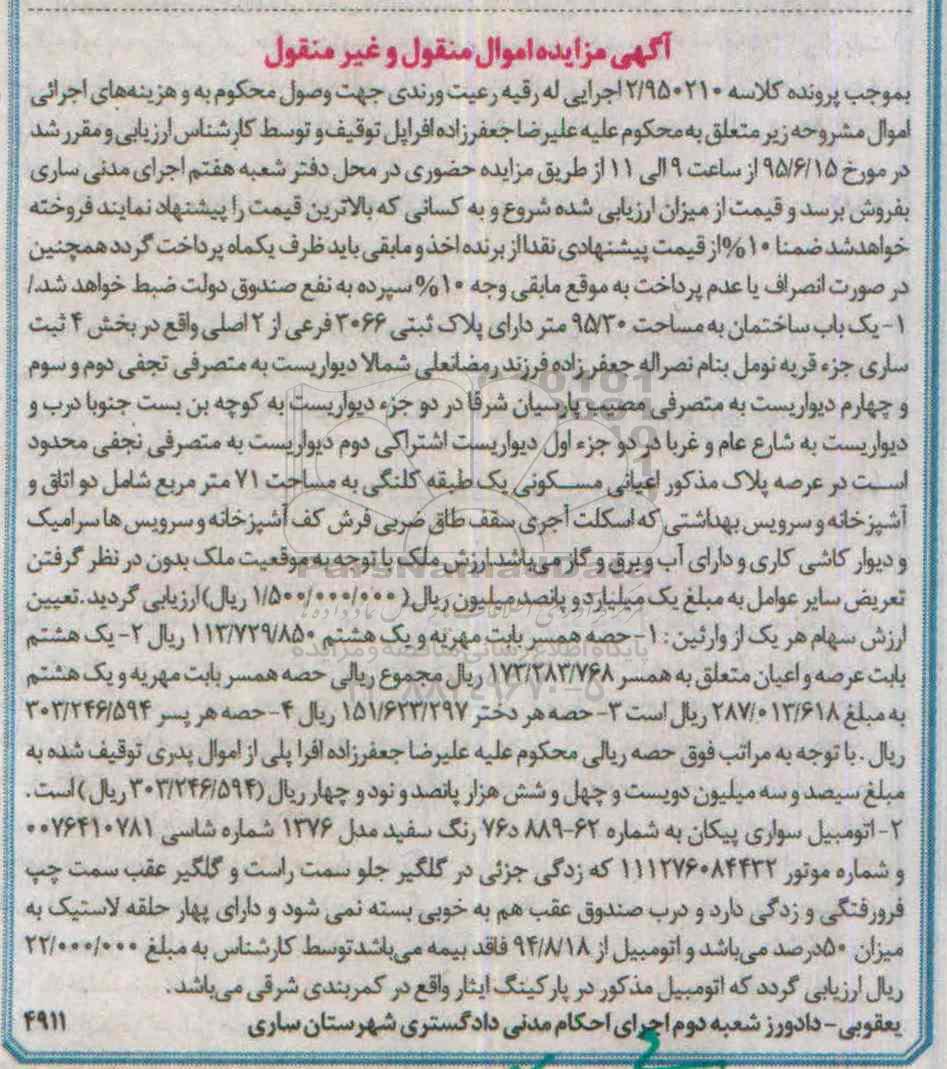 آگهی مزایده اموال منقول و غیر منقول
بموجب پرونده کلاسه ۲/۹۵۰۲۱۰ اجرایی له رقیه رعیت ورندی جهت وصول محکوم به و هزینه‌های اجرائی
اموال مشروحه زیر متعلق به محکوم علیه علیرضا جعفرزاده افراپل توقیف و توسط کارشناس ارزیابی و مقرر شد
در مورخ ۹۵/۶/۱۵ از ساعت ۹ الی ۱۱ از طریق مزایده حضوری در محل دفتر شعبه هفتم اجرای مدنی ساری
بفروش برسد و قیمت از میزان ارزیابی شده شروع و به کسانی که بالاترین قیمت را پیشنهاد نمایند فروخته
خواهدشد ضمنا ۱۰% از قیمت پیشنهادی نقدا از برنده اخذ و مابقی باید ظرف یکماه پرداخت گردد همچنین
در صورت انصراف یا عدم پرداخت به موقع مابقی وجه ۱۰% سپرده به نفع صندوق دولت ضبط خواهد شد./
۱- یک باب ساختمان به مساحت ۹۵/۳۰ متر دارای پلاک ثبتی ۳۰۶۶ فرعی از ۲ اصلی واقع در بخش ۴ ثبت
ساری جزء قریه نومل بنام نصراله جعفرزاده فرزند رمضانعلی شمالا دیواریست به متصرفی نجفی دوم و سوم
و چهارم دیواریست به متصرفی مصیب پارسیان شرقا در دو جزء دیواریست به کوچه بن بست جنوبا درب و
دیواریست به شارع عام و غربا در دو جزء اول دیواریست اشتراکی دوم دیواریست به متصرفی نجفی محدود
است در عرصه پلاک مذکور اعیانی مسکونی یک طبقه کلنگی به مساحت ۷۱ متر مربع شامل دو اتاق و
آشپزخانه و سرویس بهداشتی که اسکلت آجری سقف طاق ضربی فرش کف آشپزخانه و سرویس ها سرامیک
و دیوار کاشی کاری و دارای آب و برق و گاز می‌باشد.ارزش ملک با توجه به موقعیت ملک بدون در نظر گرفتن
تعریض سایر عوامل به مبلغ یک میلیارد و پانصد میلیون ریال( ۱/۵۰۰/۰۰۰/۰۰۰ ریال) ارزیابی گردید.تعیین
ارزش سهام هر یک از وارثین : ۱-حصه همسر بابت مهریه و یک هشتم ۱۱۳/۷۲۹/۸۵۰ ریال ۲- یک هشتم
بابت عرصه و اعیان متعلق به همسر ۱۷۳/۲۸۳/۷۶۸ ریال مجموع ریالی حصه همسر بابت مهریه و یک هشتم
به مبلغ ۲۸۷/۰۱۳/۶۱۸ ریال است ۳- حصه هر دختر ۱۵۱/۶۲۳/۲۹۷ ریال ۴-حصه هر پسر ۳۰۳/۲۴۶/۵۹۴
ریال . با توجه به مراتب فوق حصه ریالی محکوم علیه علیرضا جعفرزاده افرا پلی از اموال پدری توقیف شده به
مبلغ سیصد و سه میلیون دویست و چهل و شش هزار پانصد و نود و چهار ریال (۳۰۳/۲۴۶/۵۹۴ ریال) است.
۲- اتومبیل سواری پیکان به شماره ۶۲-۸۸۹ د۷۶ رنگ سفید مدل ۱۳۷۶ شماره شاسی ۰۰۷۶۴۱۰۷۸۱
و شماره موتور ۱۱۱۲۷۶۰۸۴۴۳۲ که زدگی جزئی در گلگیر جلو سمت راست و گلگیر عقب سمت چپ
فرورفتگی و زدگی دارد و درب صندوق عقب هم به خوبی بسته نمی شود و دارای پهار حلقه لاستیک به
میزان ۵۰درصد می‌باشد و اتومبیل از ۹۴/۸/۱۸ فاقد بیمه می‌باشدتوسط کارشناس به مبلغ ۲۲/۰۰۰/۰۰۰
ریال ارزیابی گردد که اتومبیل مذکور در پارکینگ ایثار واقع در کمربندی شرقی می‌باشد.
یعقوبی- دادورز شعبه دوم اجرای احکام مدنی دادگستری شهرستان ساری
۴۹۱۱
ParsNamadData
پایگاه اطلاع رسانی مناقصه و مزایده